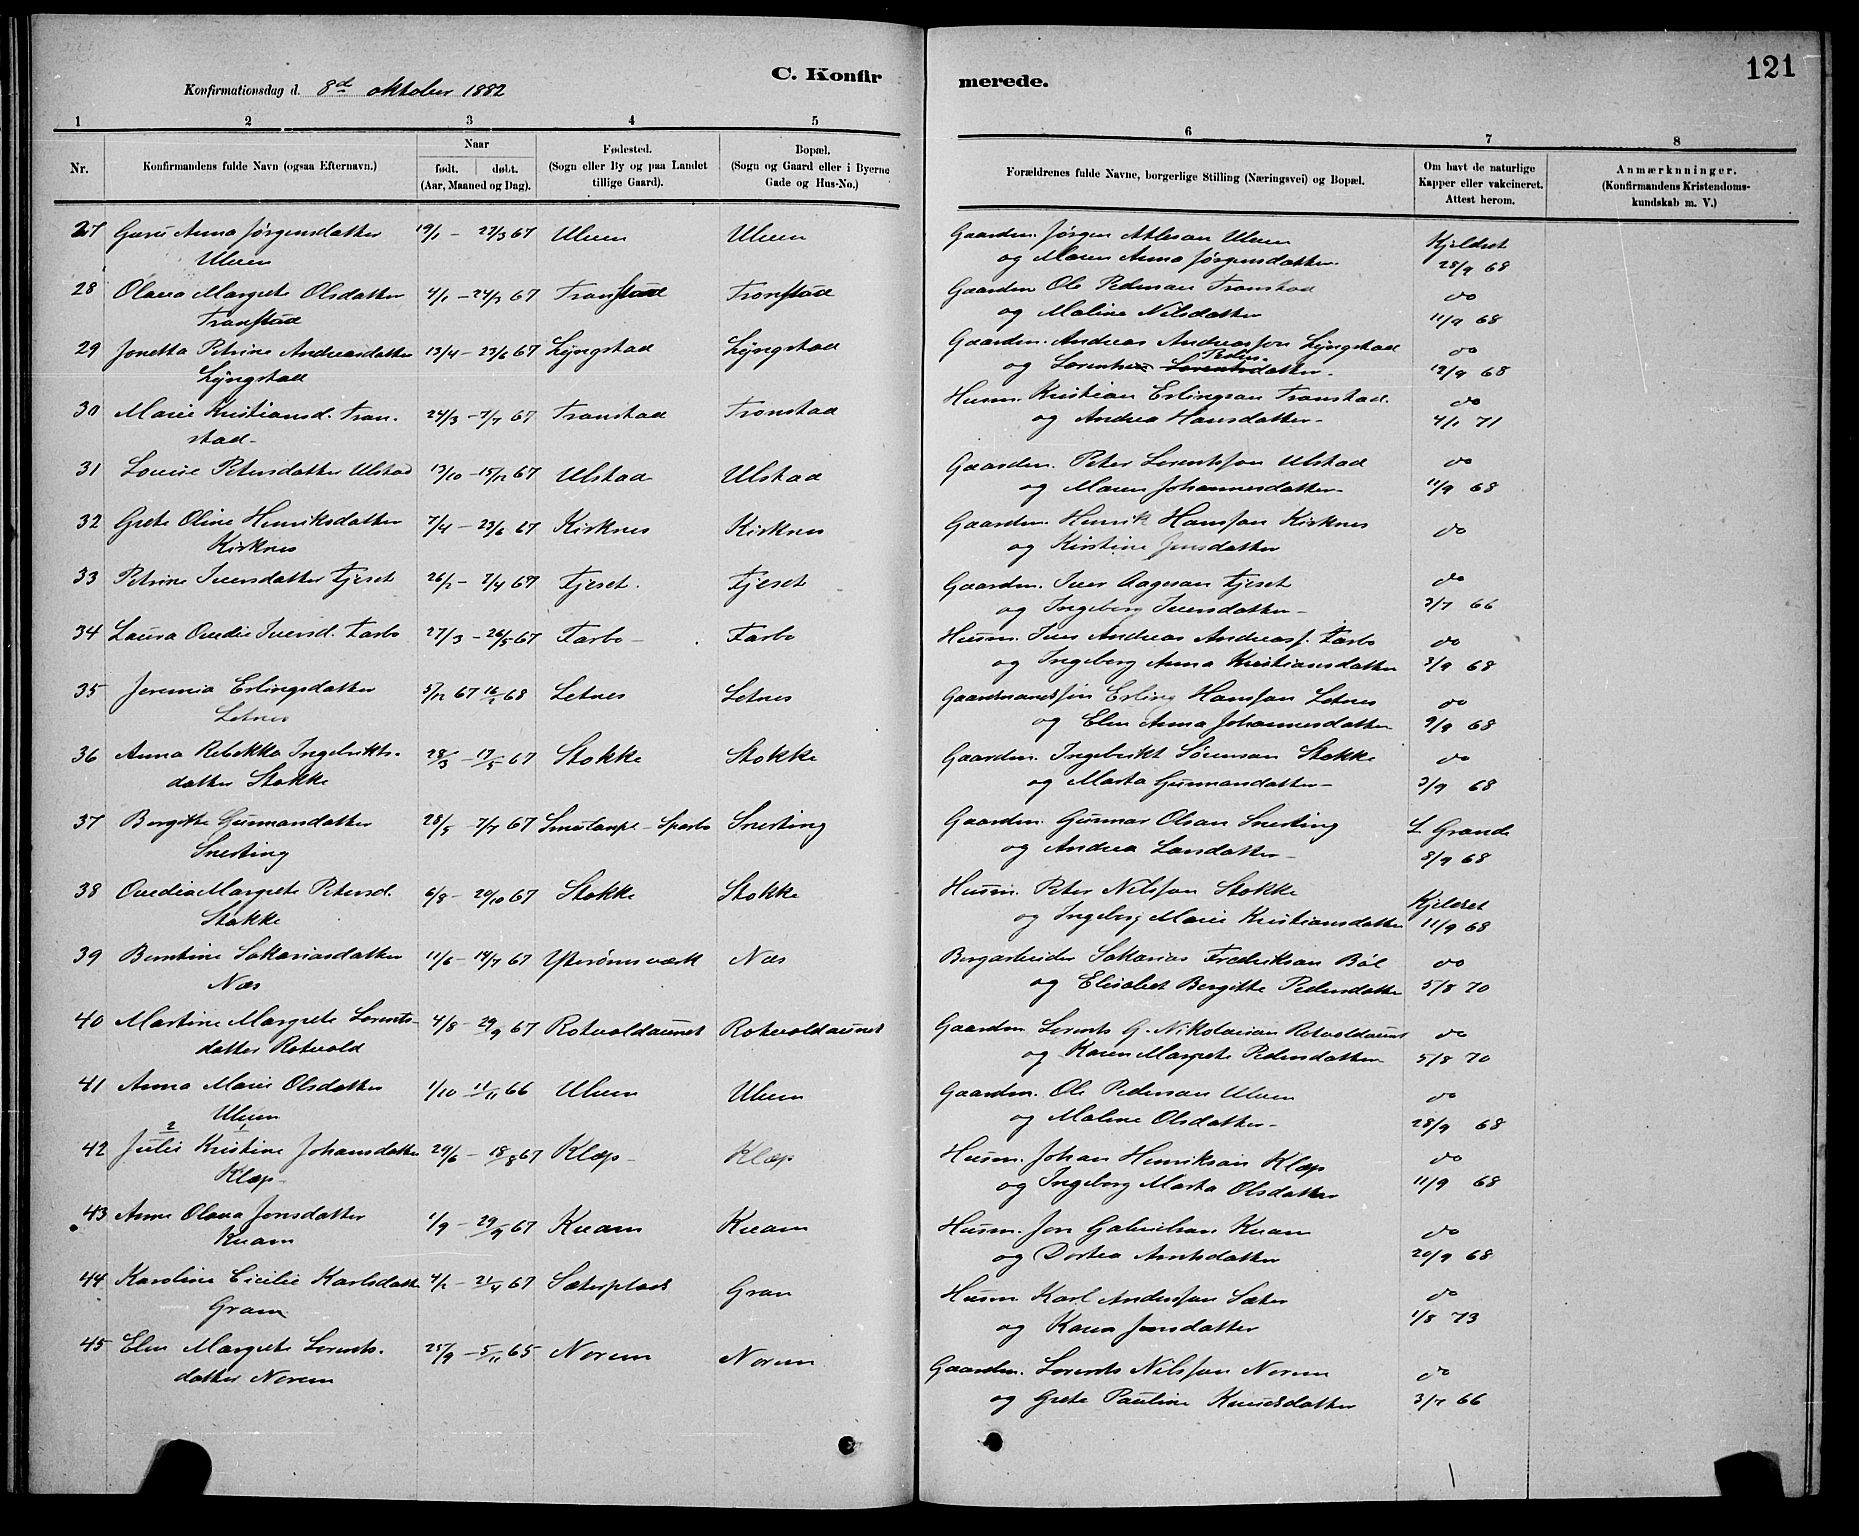 121
C. Konfirmerede.
Konfirmationsdag d. 8de oktober 1882
1 2 3 4 5 6 7 8
Nr. Konfirmandens fulde Navn (ogsaa Efternavn.) Naar født. døbt. (Aar, Maaned og Dag). Fødested. (Sogn eller By og paa Landet tillige Gaard). Bopæl. (Sogn og Gaard eller i Byerne Gade og Hus-No.) Forældrenes fulde Navne, borgerlige Stilling (Næringsvei) og Bopæl. Om havt de naturlige Kapper eller vakcineret. Attest herom. Anmærkninger. (Konfirmandens Kristendomskundskab m. V.)
27 Anna Jørgensdatter 19/1 – 27/3 67 Ulven Ulven Gaardm. Jørgen Atlesan Ulven Kjeldset
Ulven og Maren Anna Jørgensdatter 28/9 68
28 Olava Margrete Olsdatter 4/1 – 24/3 67 Tronstad Tronstad Gaardm Ole Pedersan Tronstad do
Tronstad og Maline Nilsdatter 11/9 68
29 Jonetta Petrine Andreasdatter 13/4 – 23/6 67 Lÿngstad Lÿngstad Gaardm. Andreas Andreasson Lÿngstad do
Lÿngstad og Peders-datter 12/9 68
30 Marie Kristiansd. Tron- 24/3 – 7/7 67 Tronstad Tronstad Husm. Kristian Erlingsan Tronstad. do
stad- og Andrea Hansdatter- 4/1 71
31 Louise Petersdatter Ulstad 13/10 – 15/12 67 Ulstad Ulstad Gaardm. Peter Lorentsson Ulstad do
og Maren Johannesdatter- 11/9 68
32 Grete Oline Henriksdatter 7/4 – 23/6 67 Kirknes Kirknes Gaardm. Henrik Hansson Kirknes do
Kirknes og Kirstine Jensdatter
33 Petrine Iversdatter Tjeset 26/2 – 7/4 67 Tjeset. Tjeset Gaardm. Iver Aagesan Tjeset do
og Ingeborg Iversdatter- 3/7 66
34 Laura Ovedie Iversd. Farbo 27/3 – 26/5 67 Farbo- Farbo Husm. Iver Andreas Andreass. Farbo do
og Ingeborg Anna Kristiansdatter 3/9 68
35 Jeremia Erlingsdatter 5/12 67 16/2 68 Letnes Letnes Gaardmandssøn Erling Hansson Letnes do
Letnes og Elen Anna Johannesdatter 9/9 68
36 Anna Rebekka Ingebrikts- 28/3 – 17/5 67 Stokke Stokke Gaardm. Ingebrikt Sørensan Stokke do
datter Stokke og Marta Gunnarsdatter- 3/9 68
37 Bergitte Gunnarsdatter 28/5 – 7/7 67 Sparbo Snerting Gaardm. Gunnar Olsan Snerting L Grande
Snerting og Andrea Larsdatter- 8/9 68
38 Ovedia Margrete Petersd. 6/8 – 20/10 67 Stokke Stokke Husm. Peter Nilsson Stokke Kjeldset
Stokke og Ingeborg Marie Kristiansdatter 11/9 68
39 Berntine Sakariasdatter 11/6 – 14/7 67 Ytterøens værk Næs Bergarbeider Sakarias Fredriksan Bøl do
Næs og Elisabet Bergitte Pedersdatter 5/8 70
40 Martine Margrete Lorents- 4/8 – 29/9 67 Rotvoldaunet Rotvoldaunet Gaardm. Lorents G. Nikolaisan Rotvoldaunet do
datter Rotvold og Karen Margrete Pedersdatter 5/8 70
41 Anna Marie Olsdatter 1/10 – 11/11 66 Ulven Ulven Gaardm. Ole Pedersan Ulven do
Ulven og Maline Olsdatter- 28/9 68
2 1
42 Julie Kristine Johansdatter 29/6 – 18/8 67 Klæp- Klæp Husm. Johan Henriksan Klæp do
Klæp- og Ingeborg Marta Olsdatter 11/9 68
43 Anne Olava Jonsdatter 1/9 – 29/9 67 Kvam Kvam Husm. Jon Gabrielsan Kvam do
Kvam og Dortea Arntsdatter 20/9 68
44 Karoline Cicilie Karlsdatter 4/2 – 21/4 67 Sæterplads Gran Husm. Karl Andersson Sæter do
Gram og Karen Jensdatter 1/8 73
45 Elen Margrete Lorents- 25/9 – 5/11 65 Norem Norem Gaardm. Lorents Nilsson Norem do
datter Norem og Grete Pauline Knudsdatter 3/7 66